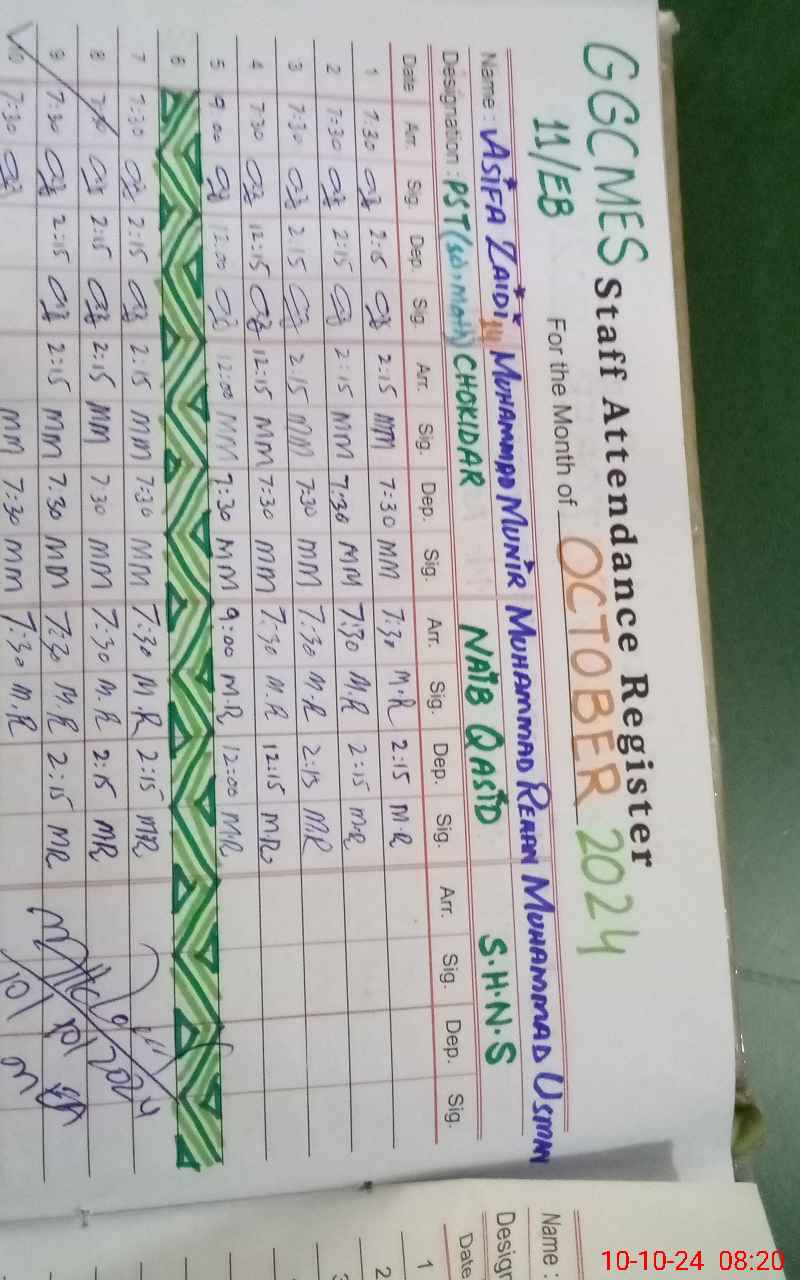 GGCMES Staff Attendance Register
11/EB For the Month of OCTOBER 2024
Name : ASIFA ZAIDI 14 MUHAMMAD MUNIR MUHAMMAD REHAN MUHAMMAD USMAN
Designation : PST (sci.math) CHOKIDAR NAIB QASID S.H.N.S
Date Arr. Sig. Dep. Sig. Arr. Sig. Dep. Sig. Arr. Sig. Dep. Sig. Arr. Sig. Dep. Sig.
1 7:30 2:15 2:15 MM 7:30 MM 7:30 M.R 2:15 M.R
2 7:30 2:15 2:15 MM 7:30 MM 7:30 M.R 2:15 M.R
3 7:30 2:15 2:15 MM 7:30 MM 7:30 M.R 2:15 MR
4 7:30 12:15 12:15 MM 7:30 MM 7:30 M.R 12:15 M.R
5 9:00 12:00 12:00 MM 7:30 MM 9:00 M.R 12:00 M.R
6
7 7:30 2:15 2:15 MM 7:30 MM 7:30 M.R 2:15 MR
8 7:30 2:15 2:15 MM 7:30 MM 7:30 M.R 2:15 MR
9 7:30 2:15 2:15 MM 7:30 MM 7:30 M.R 2:15 MR
10 7:30 MM 7:30 MM 7:30 M.R
Name :
Design
Date
1
2
3
10-10-24 08:20